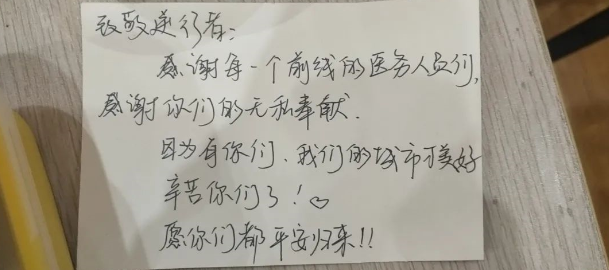 致敬逆行者:
感谢每一个前线的医务人员们,
感谢你们的无私奉献.
因为有你们、我们的城市才美好
辛苦你们了!♡
愿你们都平安归来!!